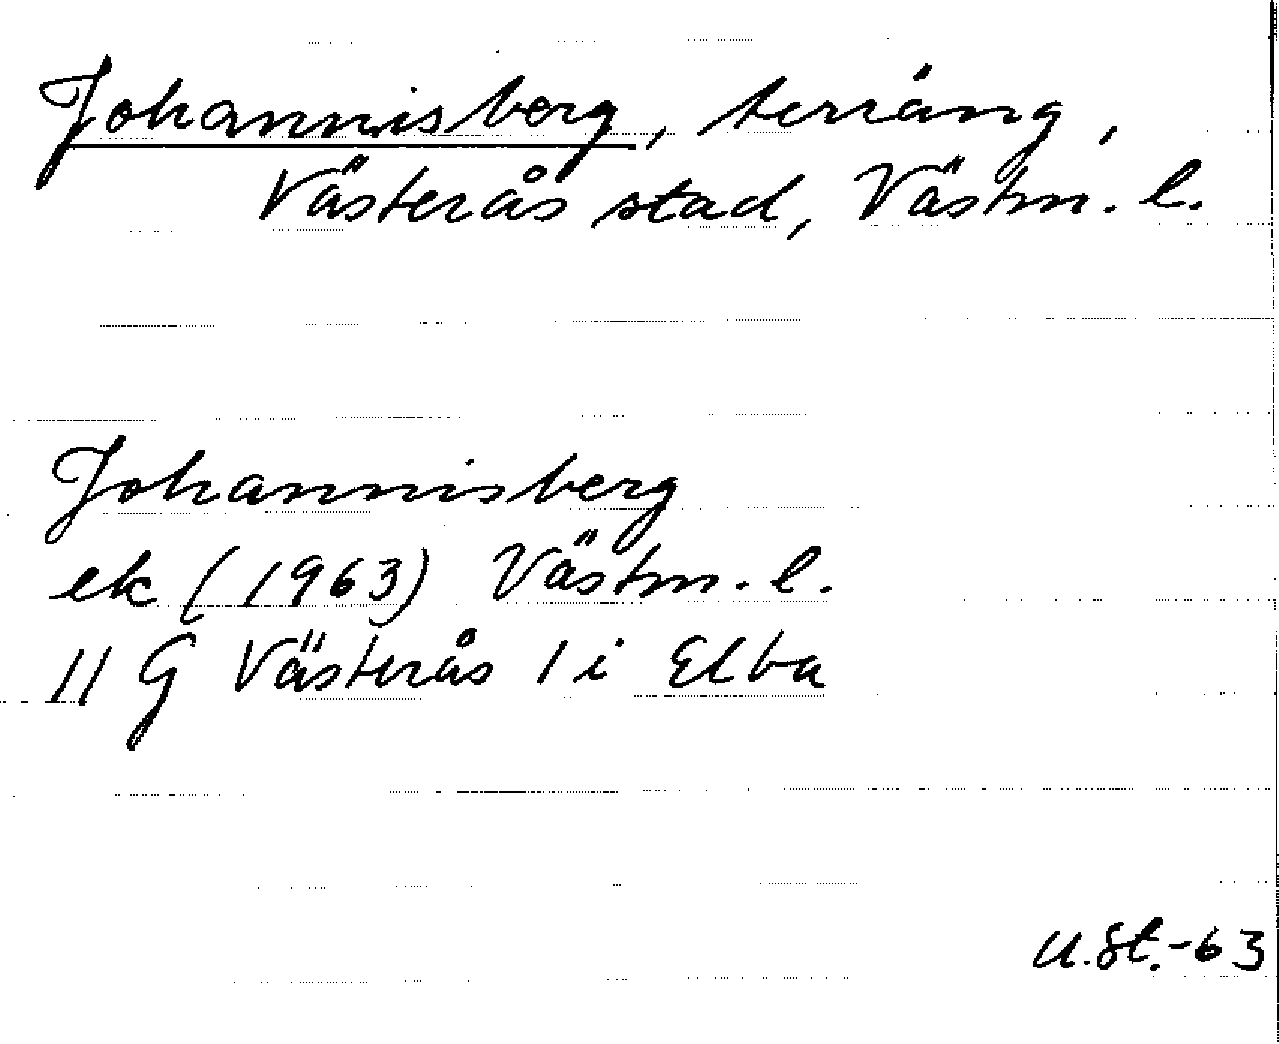 Johannisberg, terräng,
Västerås stad, Västm. l.
Johannisberg
ek (1963) Västm. l.
11 G Västerås 1 i Elba
U.St.-63